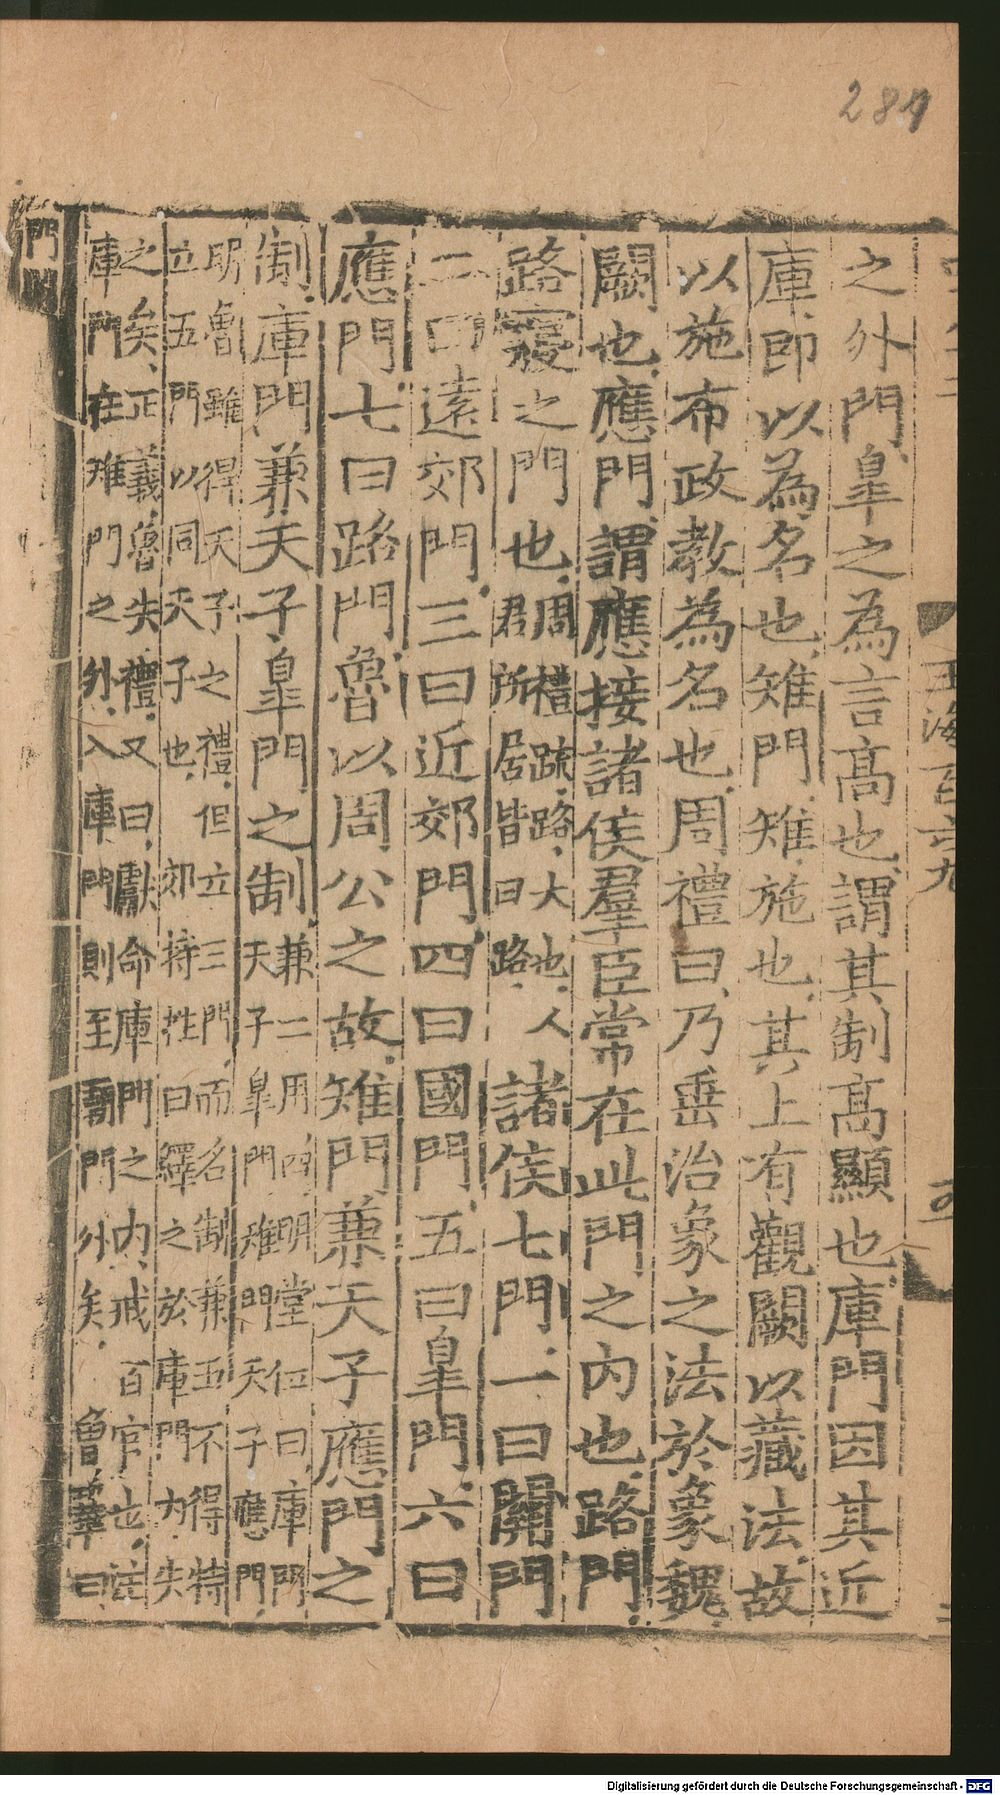 284
之外門臯之為言高也謂其制高顯也庫門因其近
庫即以為名也雉門雉施也其上有觀闕以藏法故
以施布政教為名也周禮曰乃垂治象之法於象魏
闕也應門謂應接諸侯羣臣常在此門之内也路門
路寢之門也周禮疏路大也人
君所居皆曰路諸侯七門一曰關門
二曰遠郊門三曰近郊門四曰國門五曰臯門六曰
應門七曰路門魯以周公之故雉門兼天子應門之
制庫門兼天子臯門之制兼二用四明堂位曰庫門
天子臯門雉門天子應門
明魯雖得天子之禮但立三門而名制兼五不得特
立五門以同天子也郊特牲曰繹之於庫門内失
之矣正義魯失禮又曰獻命庫門之内戒百官也注
庫門在雉門之外入庫門則至門外矣魯單曰
玉海百六九
Digitalisierung gefördert durch die Deutsche Forschungsgemeinschaft - DFG